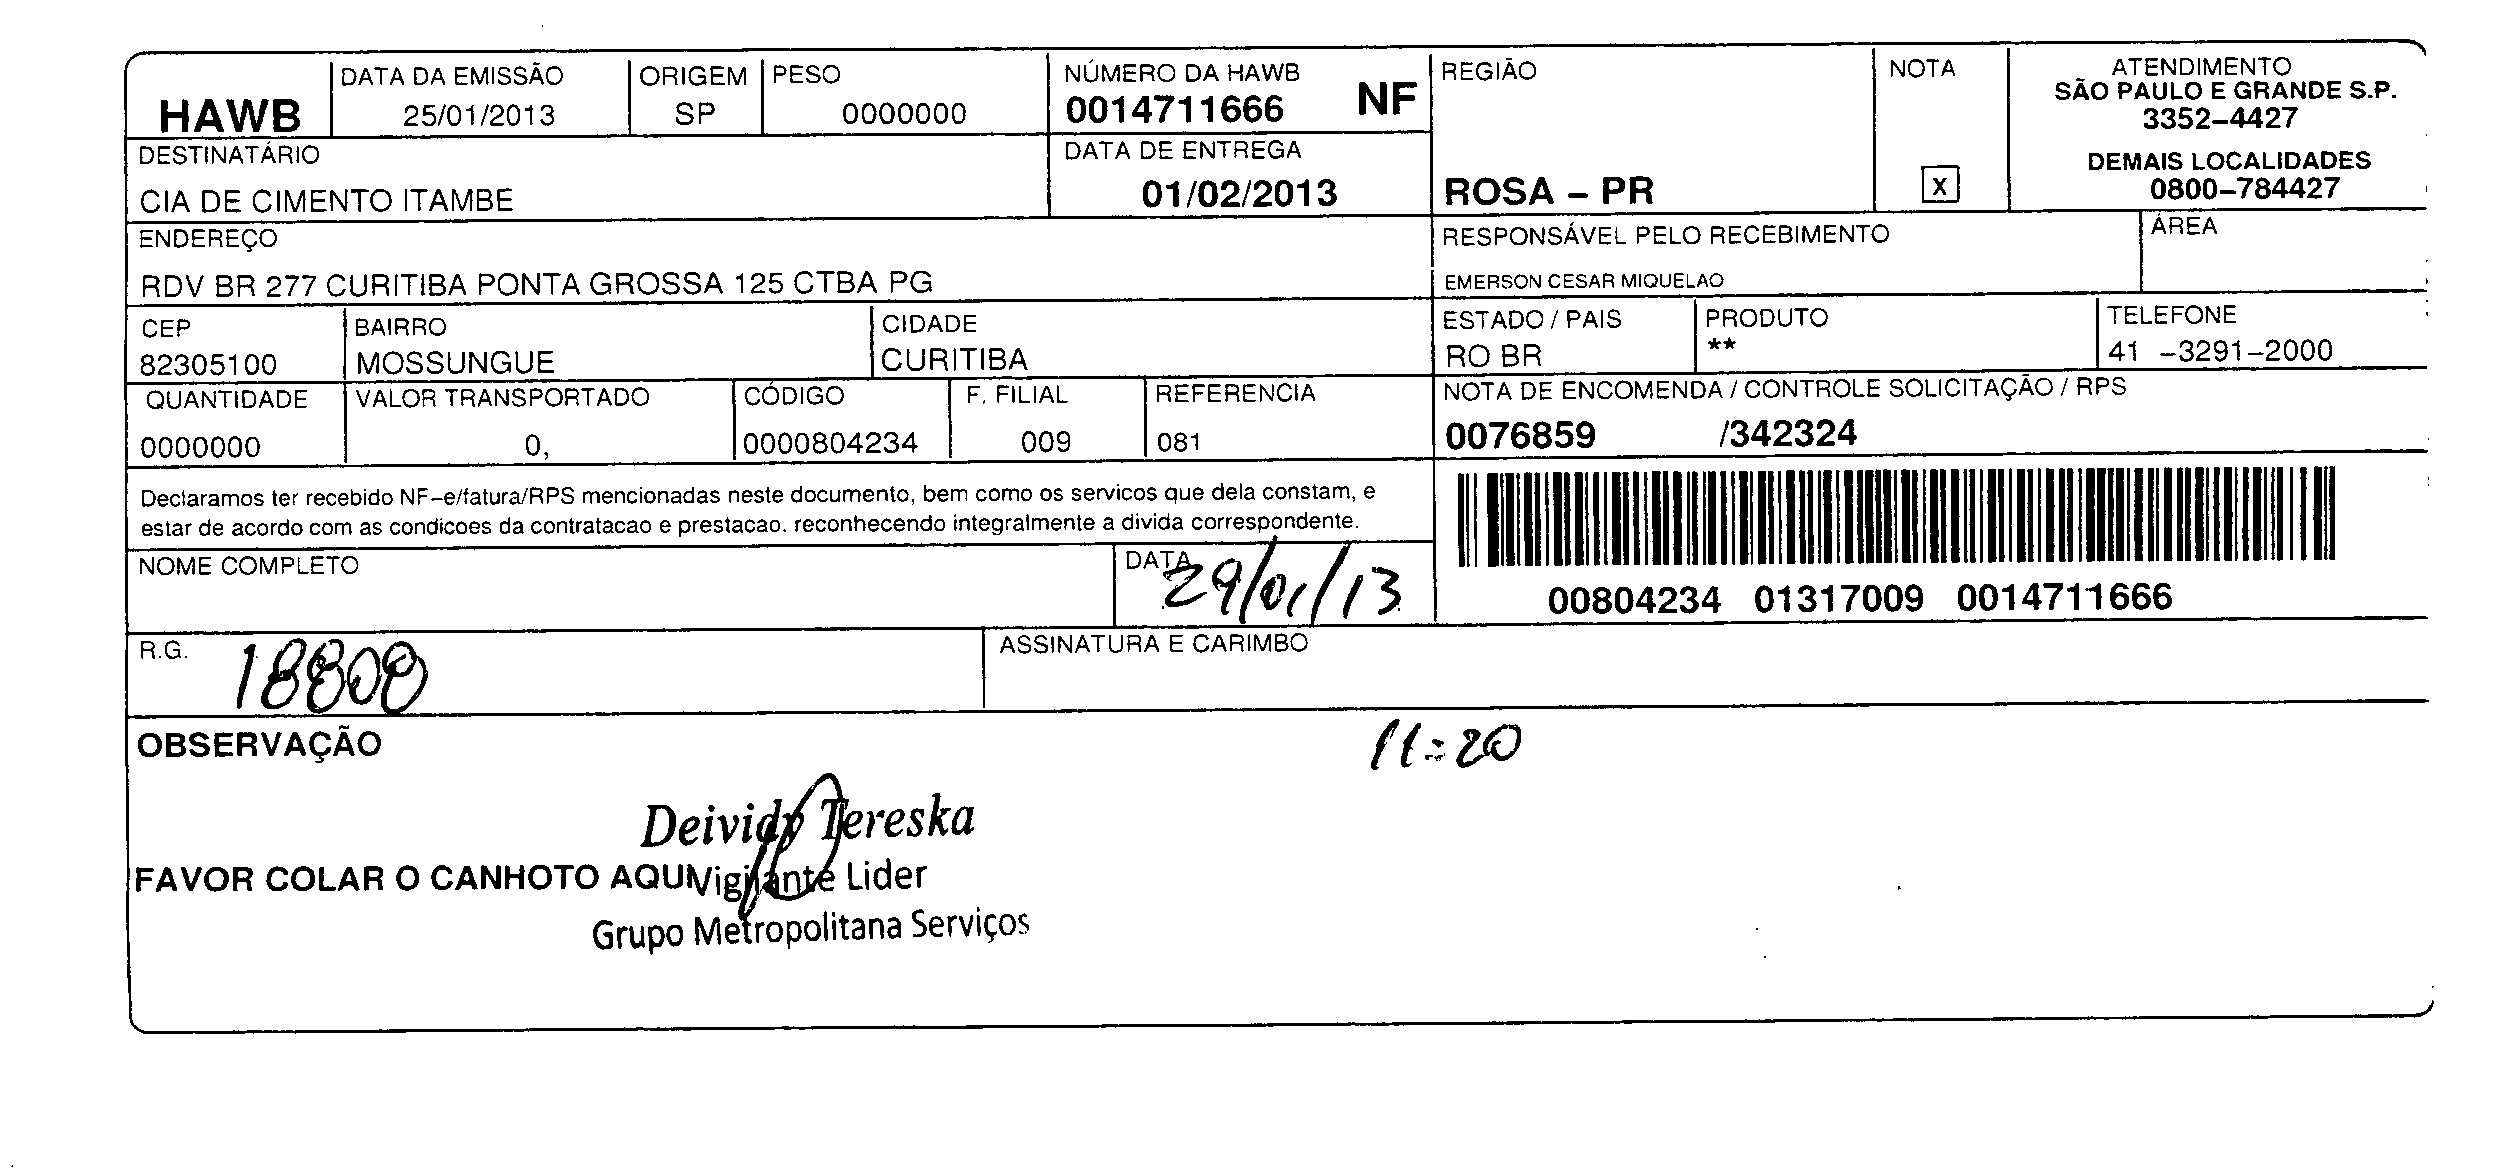 HAWB
DATA DA EMISSÃO
25/01/2013
ORIGEM
SP
PESO
0000000
NÚMERO DA HAWB
0014711666 NF
REGIÃO
ROSA – PR
NOTA
X
ATENDIMENTO
SÃO PAULO E GRANDE S.P.
3352–4427
DEMAIS LOCALIDADES
0800–784427
DESTINATÁRIO
CIA DE CIMENTO ITAMBE
DATA DE ENTREGA
01/02/2013
ENDEREÇO
RDV BR 277 CURITIBA PONTA GROSSA 125 CTBA PG
RESPONSÁVEL PELO RECEBIMENTO
EMERSON CESAR MIQUELAO
ÁREA
CEP
82305100
BAIRRO
MOSSUNGUE
CIDADE
CURITIBA
ESTADO / PAIS
RO BR
PRODUTO
**
TELEFONE
41 –3291–2000
QUANTIDADE
0000000
VALOR TRANSPORTADO
0,
CÓDIGO
0000804234
F. FILIAL
009
REFERENCIA
081
NOTA DE ENCOMENDA / CONTROLE SOLICITAÇÃO / RPS
0076859 /342324
Declaramos ter recebido NF–e/fatura/RPS mencionadas neste documento, bem como os servicos que dela constam, e
estar de acordo com as condicoes da contratacao e prestacao. reconhecendo integralmente a divida correspondente.
00804234 01317009 0014711666
NOME COMPLETO
DATA
29/01/13
R.G.
18808
ASSINATURA E CARIMBO
OBSERVAÇÃO
11:20
Deividy Tereska
FAVOR COLAR O CANHOTO AQUI
Vigilante Lider
Grupo Metropolitana Serviços